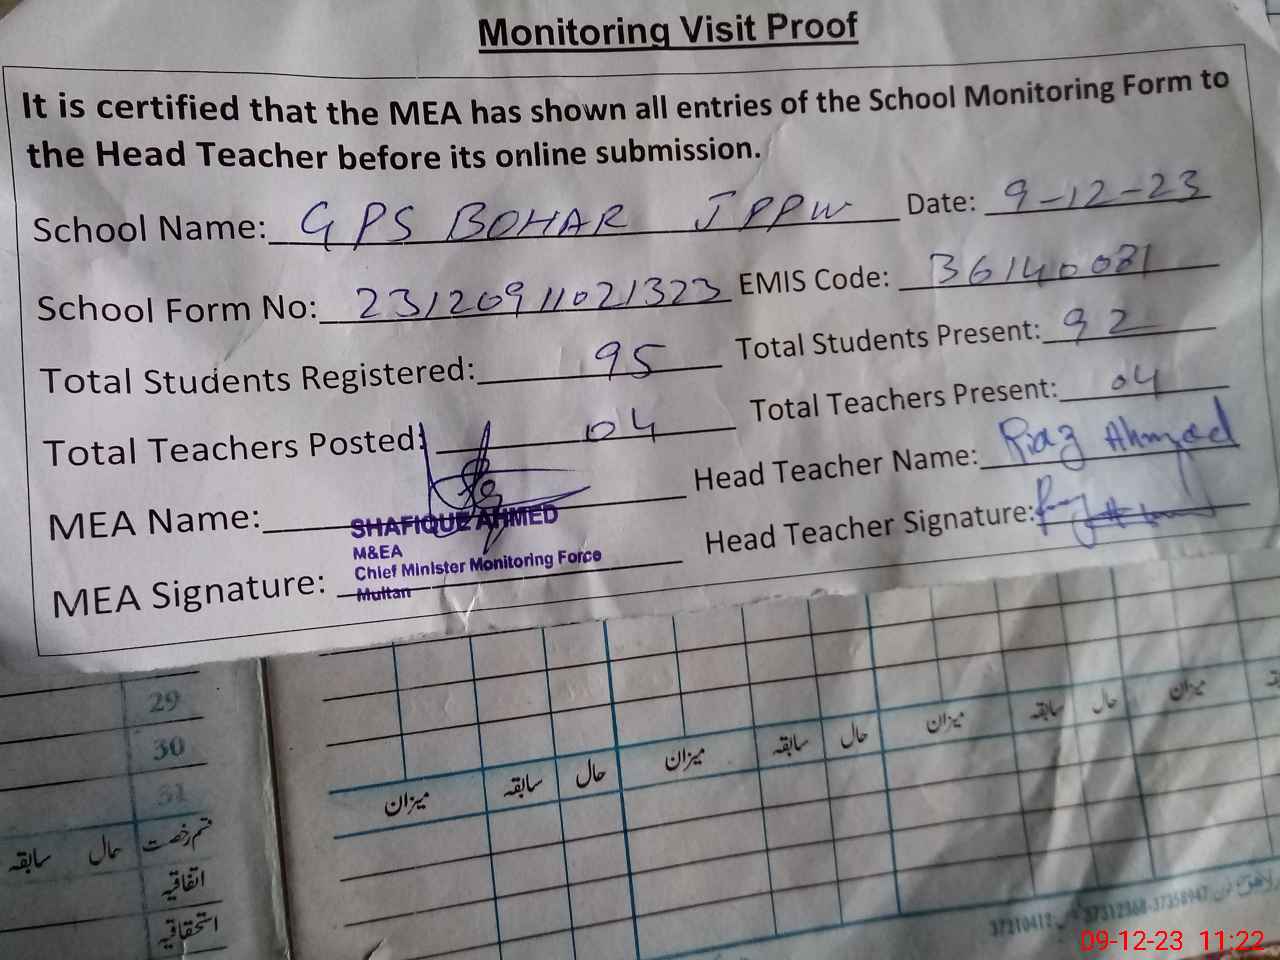 Monitoring Visit Proof
It is certified that the MEA has shown all entries of the School Monitoring Form to
the Head Teacher before its online submission.
School Name: GPS BOHAR JPPW Date: 9-12-23
School Form No: 23120911021323 EMIS Code: 36140081
Total Students Registered: 95 Total Students Present: 92
Total Teachers Posted: 04 Total Teachers Present: 04
MEA Name: Head Teacher Name: Riaz Ahmad
SHAFIQUE AHMED
M&EA
Chief Minister Monitoring Force
Multan
MEA Signature: Head Teacher Signature:
29
30
31
میزان سابقہ حال میزان سابقہ حال میزان سابقہ حال میزان
قسم رخصت حال سابقہ
اتفاقیہ
استحقاقیہ
37312368-37358947 37310418
09-12-23 11:22